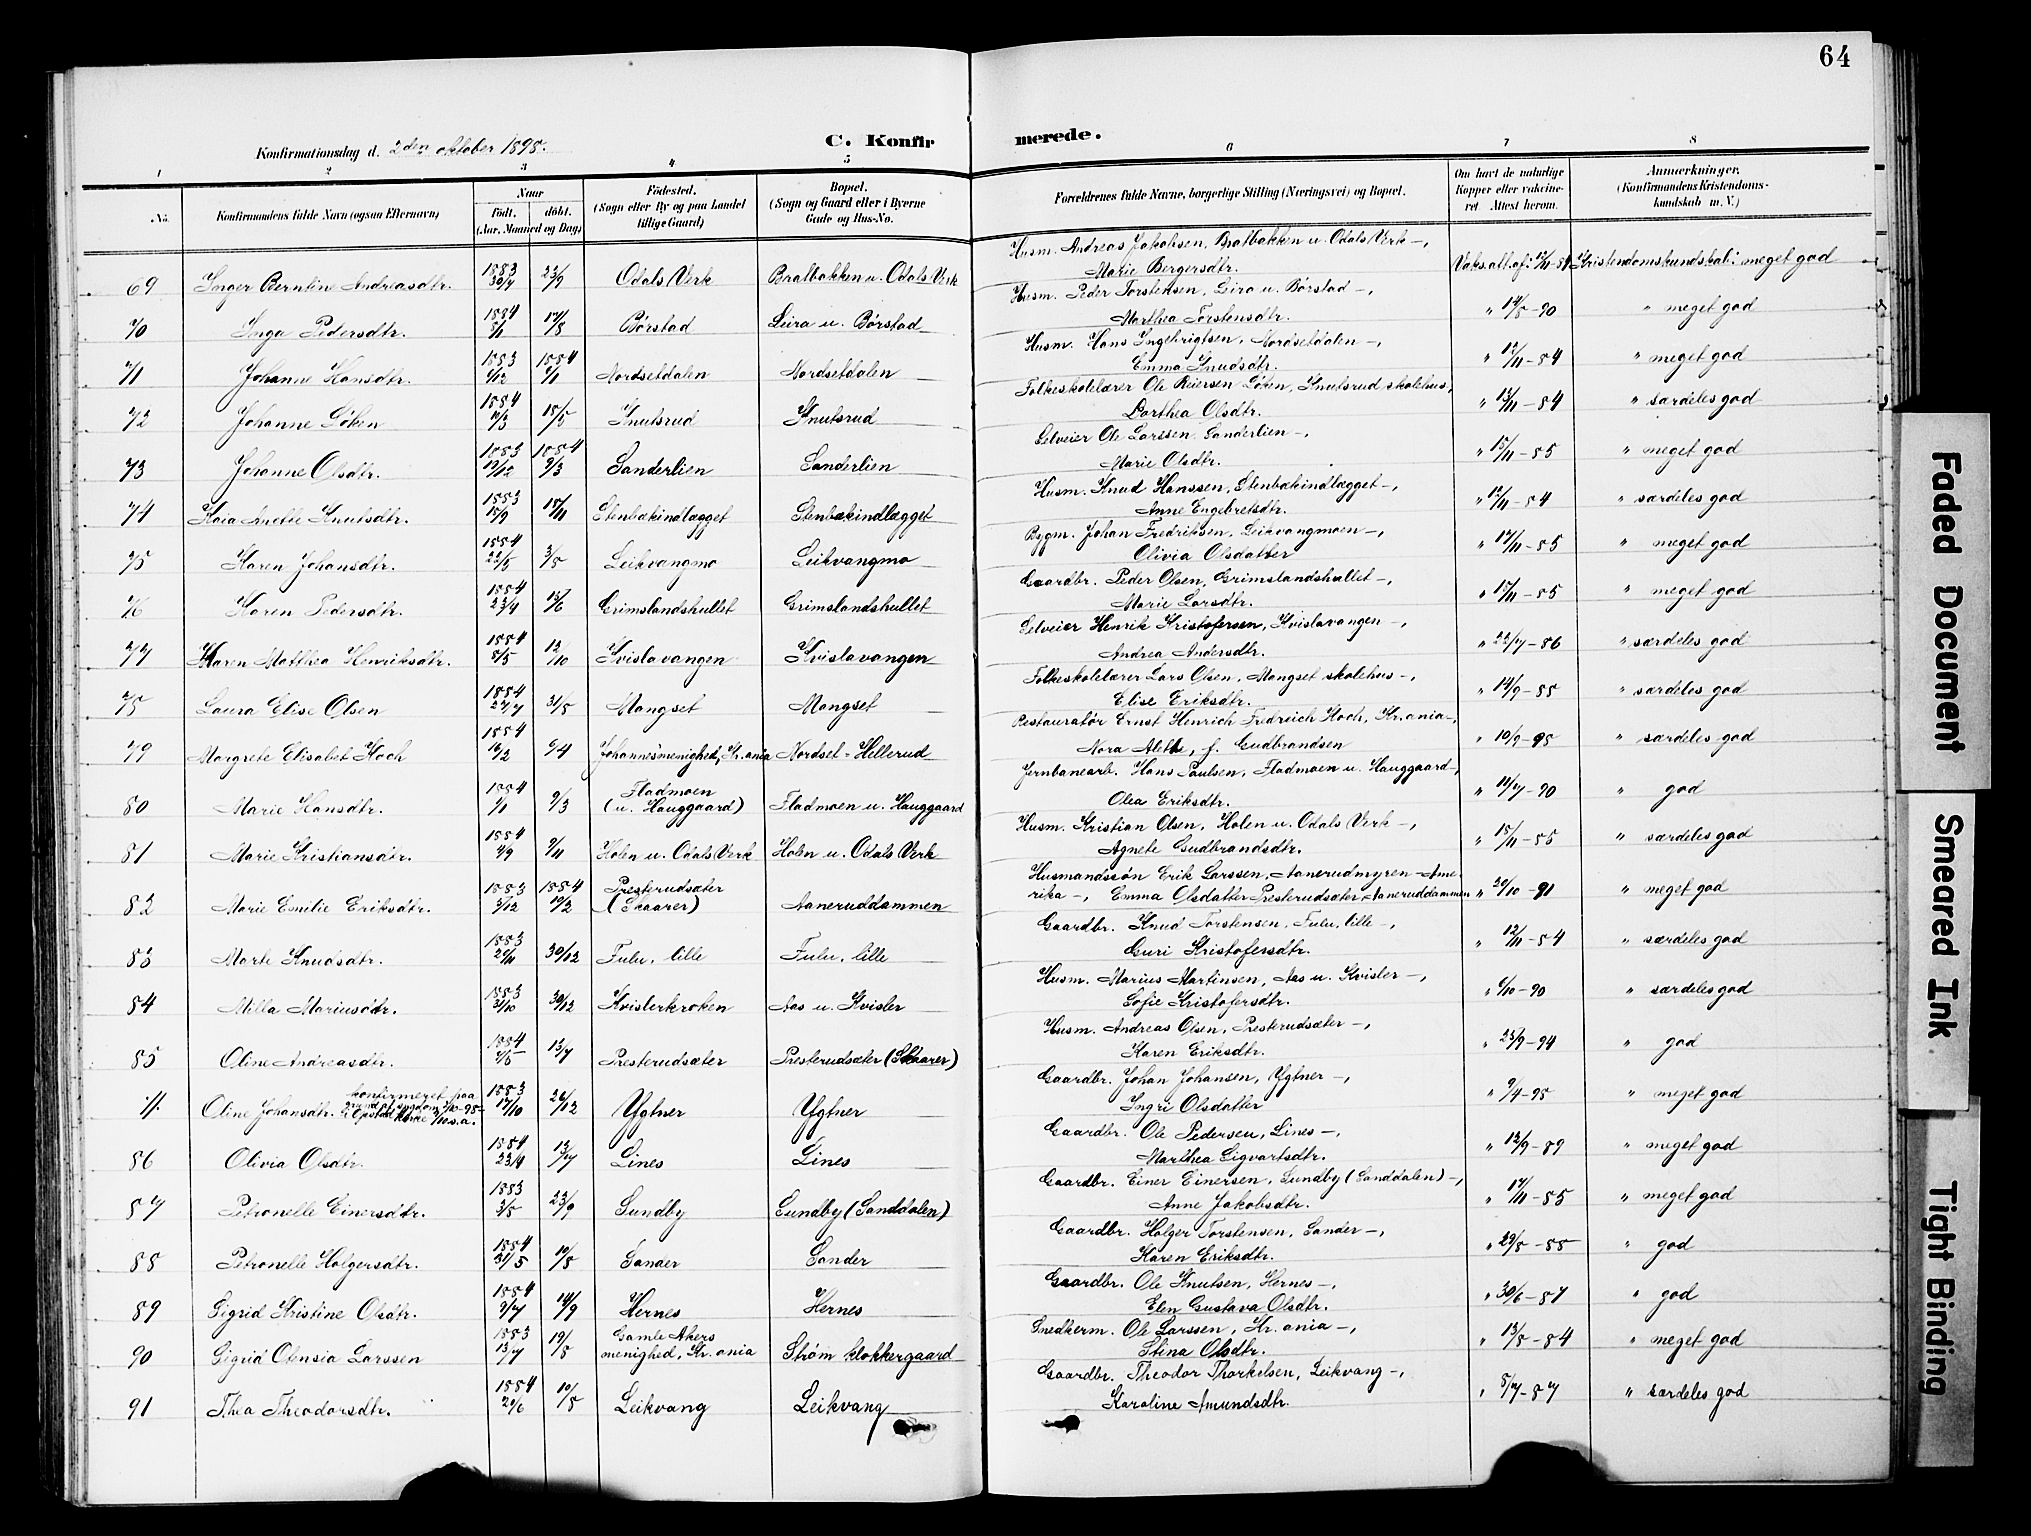 64
Konfirmationsdag d. 2den oktober 1898.
C. Konfirmerede.
1 2 3 4 5 6 7 8
No.
Konfirmandens fulde Navn (ogsaa Efternavn)
Naar
født. døbt.
(Aar, Maaned og Dag)
Fødested.
(Sogn eller By og paa Landet
tillige Gaard)
Bopæl.
(Sogn og Gaard eller i Byerne
Gade og Hus-No.
Forældrenes fulde Navne, borgerlige Stilling (Næringsvei) og Bopæl.
Om havt de naturlige
Kopper eller vaccine-
ret Attest herom.
Anmærkninger.
(Konfirmandens Kristendoms-
kundskab m. V.)
69 Inger Berntin Andreasdtr. 1883 30/7 23/9 Odals Verk Bratbakken u. Odals Verk Husm. Andreas Jakobsen, Bratbakken u. Odals Verk -,
Marie Bergersdtr. Vaks.att.af: 12/11-84 Kristendomskundskab: meget god
70 Inga Pedersdtr. 1884 5/1 17/8 Børstad Leira u. Børstad Husm. Peder Torstensen, Leira u. Børstad -,
Marthea Torstensdtr. " 14/5-90 " meget god
71 Johanne Hansdtr. 1883 6/12 1884 1/1 Nordsetdalen Nordsetdalen Husm. Hans Ingebrigtsen, Nordsetdalen -,
Emma Knudsdtr. " 12/11-84 " meget god
72 Johanne Løken 1884 11/3 18/5 Knutsrud Knutsrud Folkeskolelærer Ole Reiersen Løken, Knutsrud skolehus,
Dorthea Olsdtr. " 13/11-84 " særdeles god
73 Johanne Olsdtr. 1883 19/12 1884 9/3 Sanderlien Sanderlien Selveier Ole Larssen, Sanderlien -,
Marie Olsdtr. " 15/11-85 " meget god
74 Kaia Anette Knutsdtr. 1883 15/9 18/11 Stenbækindlægget Stenbækindlægget Husm. Knud Hanssen, Stenbækindlægget -,
Anne Engebretsdtr. " 12/11-84 " særdeles god
75 Karen Johansdtr. 1884 22/5 3/8 Leikvangmo Leikvangmo Bygm. Johan Fredriksen, Leikvangmoen -,
Olivia Olsdatter " 17/11-85 " meget god
76 Karen Pedersdtr. 1884 23/4 15/6 Grimslandshullet Grimslandshullet Gaardbr. Peder Olsen, Grimslandshullet -,
Marie Larsdtr. " 15/11-85 " meget god
77 Karen Matthea Henriksdtr. 1884 8/5 12/10 Kvislavangen Kvislavangen Selveier Henrik Kristofersen, Kvislavangen -,
Andrea Andersdtr. " 22/7-86 " særdeles god
78 Laura Elise Olsen 1884 27/7 31/8 Mangset Mangset Folkeskolelærer Lars Olsen, Mangset skolehus -,
Elise Eriksdtr. " 14/9-88 " særdeles god
79 Margrete Elisabet Koch 1884 16/2 6/4 Johannesmenighed, Kr.ania Nordset-Hellerud Restauratør Ernst Henrich Fredreich Koch, Kr.ania -,
Nora Alethe, f. Gudbrandsen " 10/9-95 " særdeles god
80 Marie Hansdtr. 1884 1/1 9/3 Fladmoen
(u. Hauggaard) Fladmoen u. Hauggaard Jernbanearb. Hans Paulsen, Fladmoen u. Hauggaard -,
Olea Eriksdtr. " 14/7-90 " god
81 Marie Kristiansdtr. 1884 4/9 9/11 Holen u. Odals Verk Holen u. Odals Verk Husm. Kristian Olsen, Holen u. Odals Verk -,
Agnete Gudbrandsdtr. " 15/11-85 " særdeles god
82 Marie Emilie Eriksdtr. 1883 3/12 1884 10/2 Presterudsæter
(Skaarer) Aaneruddammen Husmandssøn Erik Larssen, Aanerudmyren - Ame-
rika -, Emma Olsdatter Presterudsæter Aaneruddammen " 20/10-91 " meget god
83 Marte Knudsdtr. 1883 25/11 30/12 Fulu, lille Fulu, lille Gaardbr. Knud Torstensen, Fulu, lille -,
Guri Kristofersdtr. " 12/11-84 " særdeles god
84 Milla Mariusdtr. 1883 31/10 30/12 Kvislerkroken Aas u. Kvisler Husm. Marius Martinsen, Aas u. Kvisler -,
Sofie Kristofersdtr. " 6/10-90 " særdeles god
85 Oline Andreasdtr. 1884 4/5 13/7 Presterudsæter Presterudsæter (Skaarer) Husm. Andreas Olsen, Presterudsæter -,
Karen Eriksdtr. " 23/9-94 " god
Oline Johansdtr. konfirmeret paa
grund af sygdom
1883 17/10 26/12 Ygtner Ygtner Gaardbr. Johan Johansen, Ygtner -,
Ingri Olsdatter " 9/4-95 " meget god
86 Olivia Olsdtr. 1884 23/4 13/7 Lines Lines Gaardbr. Ole Pedersen, Lines -,
Marthea Sigvartsdtr. " 13/9-89 " meget god
87 Petronelle Einersdtr. 1883 3/8 23/9 Sundby Sundby (Sanddalen) Gaardbr. Einer Einersen, Sundby (Sanddalen) -,
Anne Jakobsdtr. " 17/11-85 " meget god
88 Petronelle Holgersdtr. 1884 31/5 10/8 Sander Sander Gaardbr. Holger Torstensen, Sander -,
Karen Eriksdtr. " 29/8-88 " god
89 Sigrid Kristine Olsdtr. 1884 9/7 14/9 Hernes Hernes Gaardbr. Ole Knutsen, Hernes -,
Elen Gustava Olsdtr. " 30/6-87 " god
90 Sigrid Otensia Larssen 1883 13/7 19/8 Gamle Akers
menighed, Kr.ania Strøm klokkergaard Snedkerm. Ole Larssen, Kr.ania -,
Stina Olsdtr. " 13/5-84 " meget god
91 Thea Theodorsdtr. 1884 20/6 10/8 Leikvang Leikvang Gaardbr. Theodor Thorkelsen, Leikvang -,
Karoline Amundsdtr. " 8/7-87 " særdeles god
Faded Document
Smeared Ink
Tight Binding